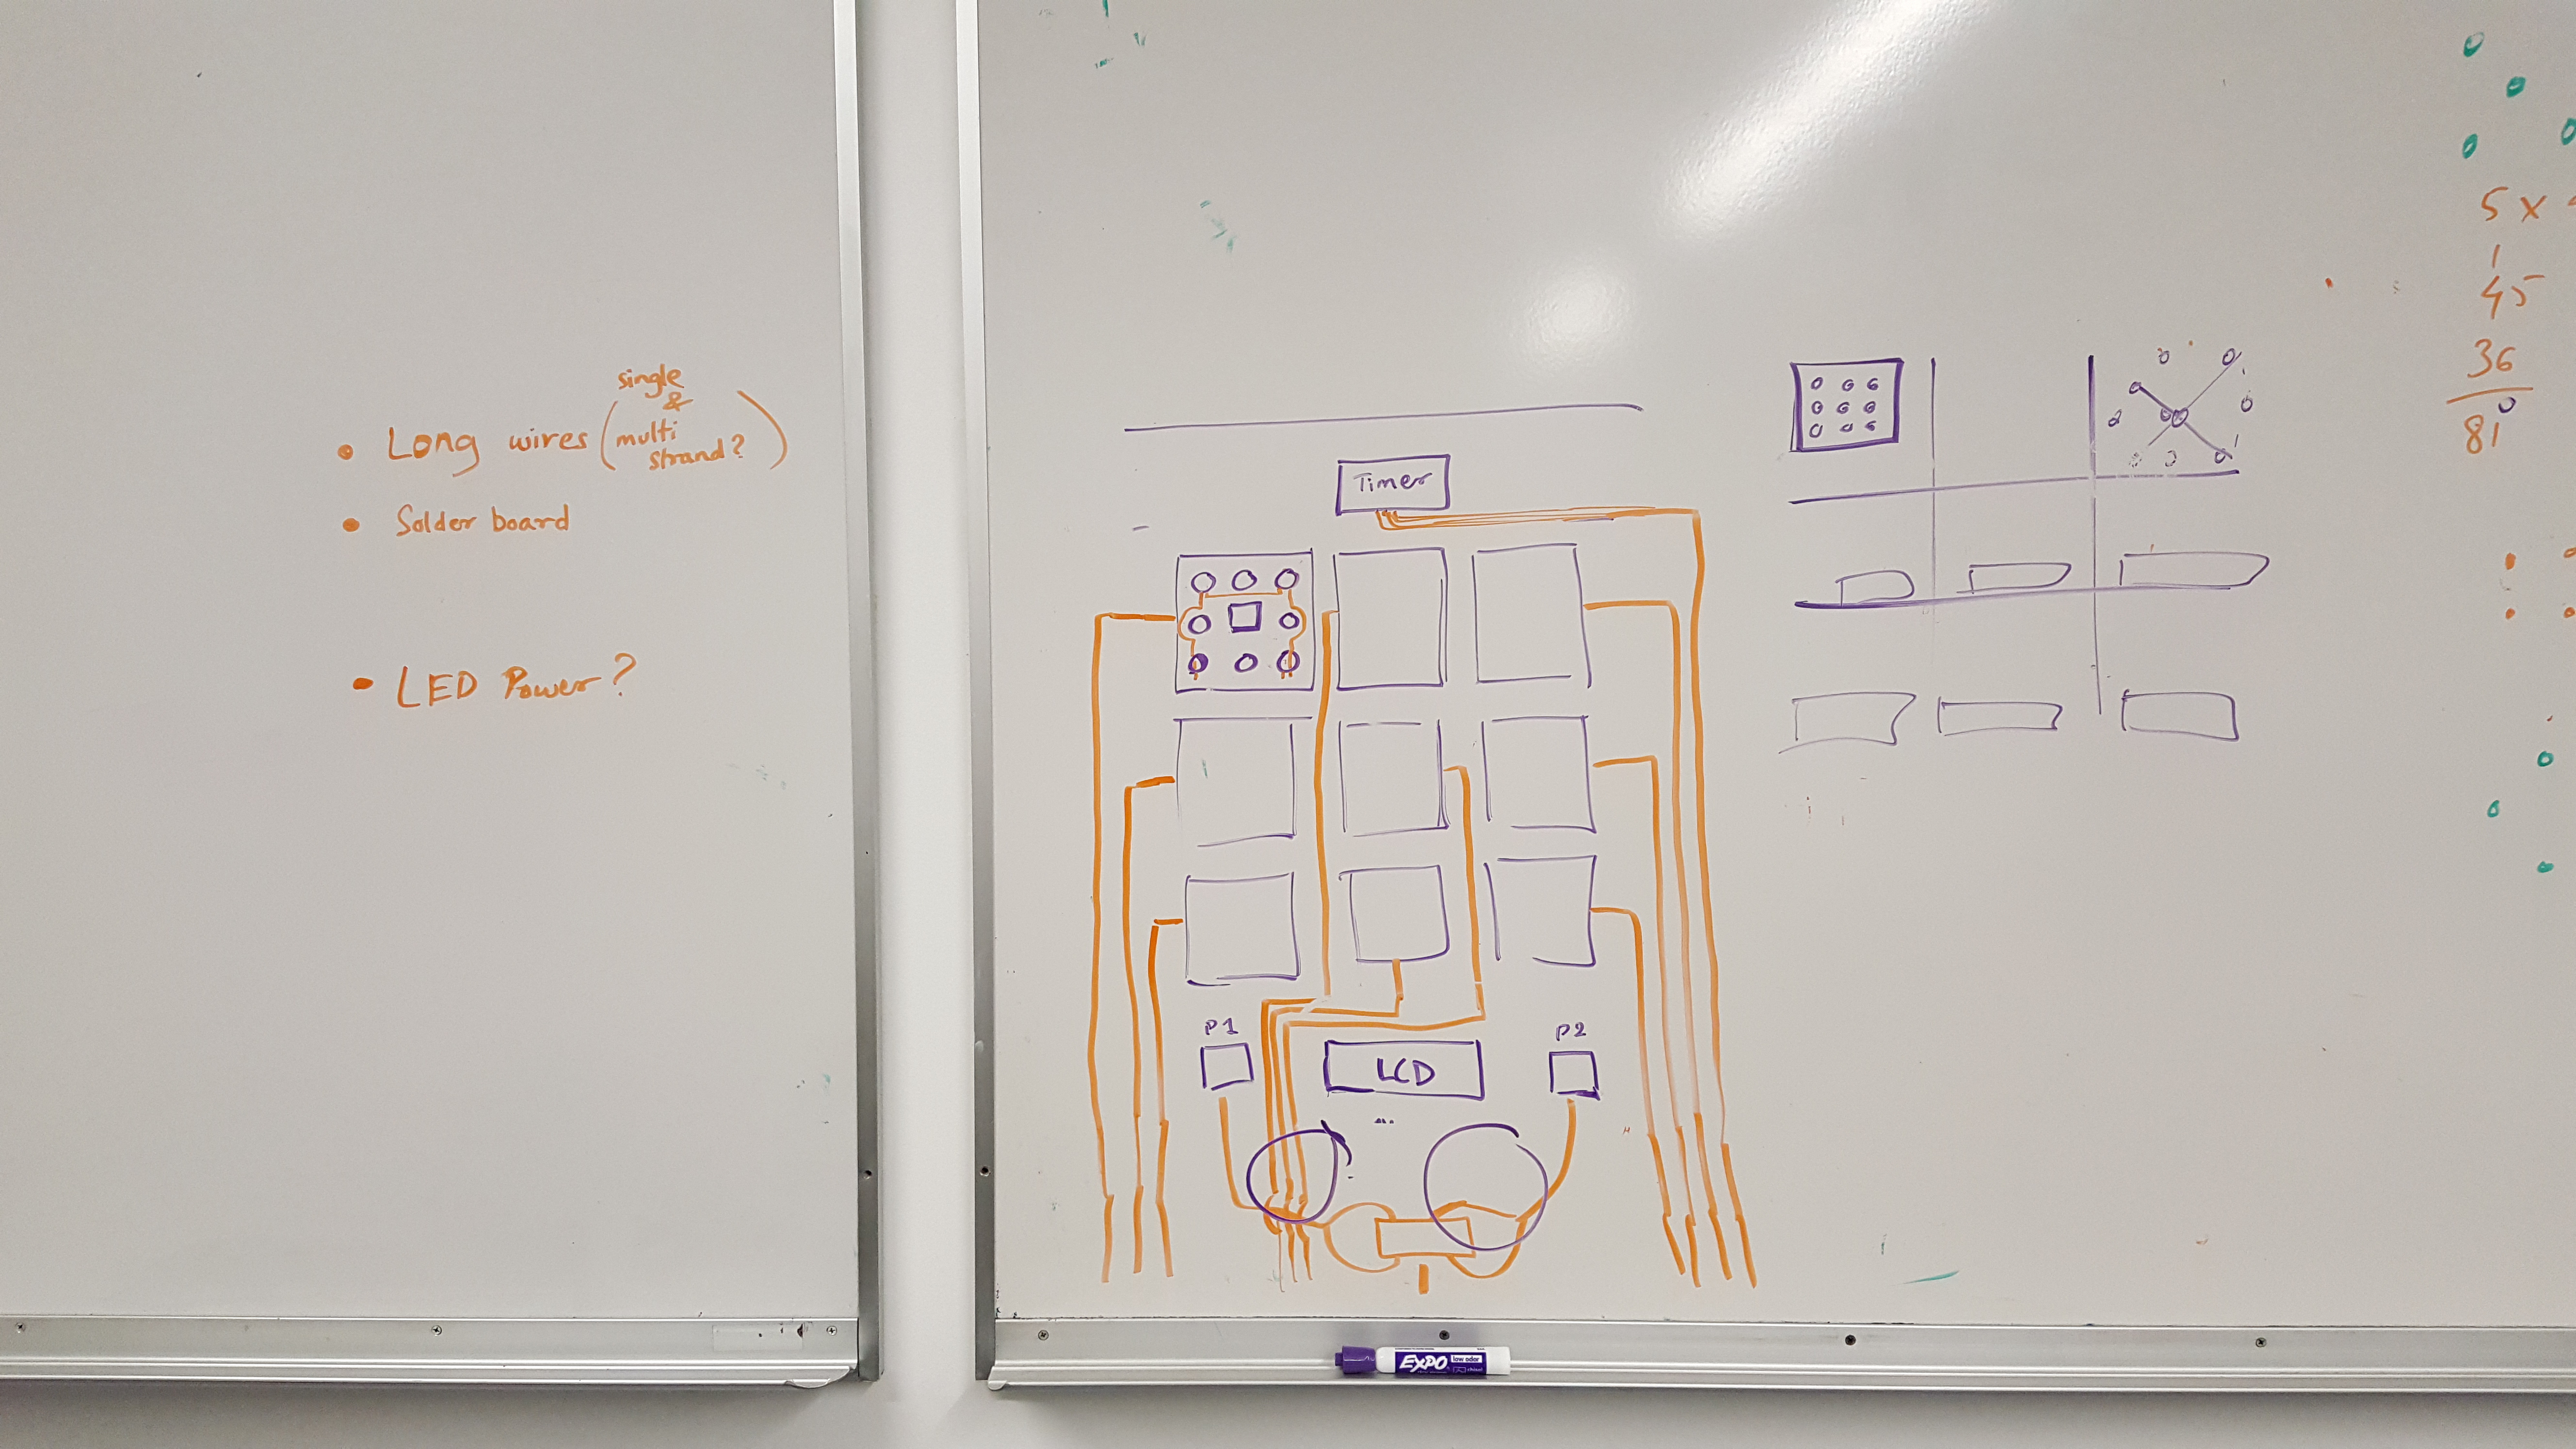 • Long wires (single
&
multi
strand?)
• Solder board
• LED Power?
Timer
P1
LCD
P2
5 x
1
45
36
81
EXPO low odor